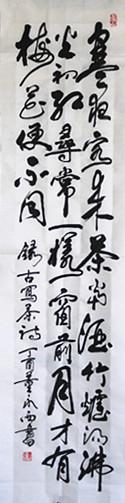 寒夜客来茶當酒竹爐湯沸
火初紅尋常一樣窗前月才有
梅花便不同
錄古寫茶詩丁酉董永西書